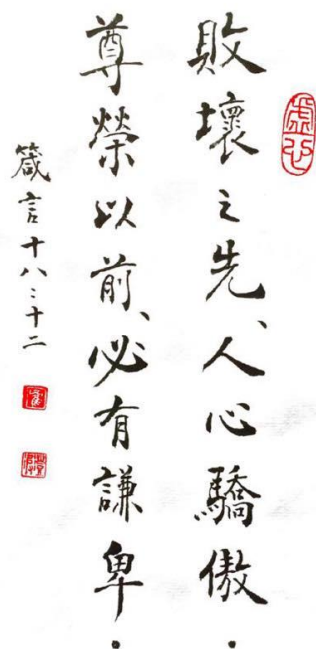 虛心
敗壞之先、人心驕傲．
尊榮以前、必有謙卑．
箴言十八:十二